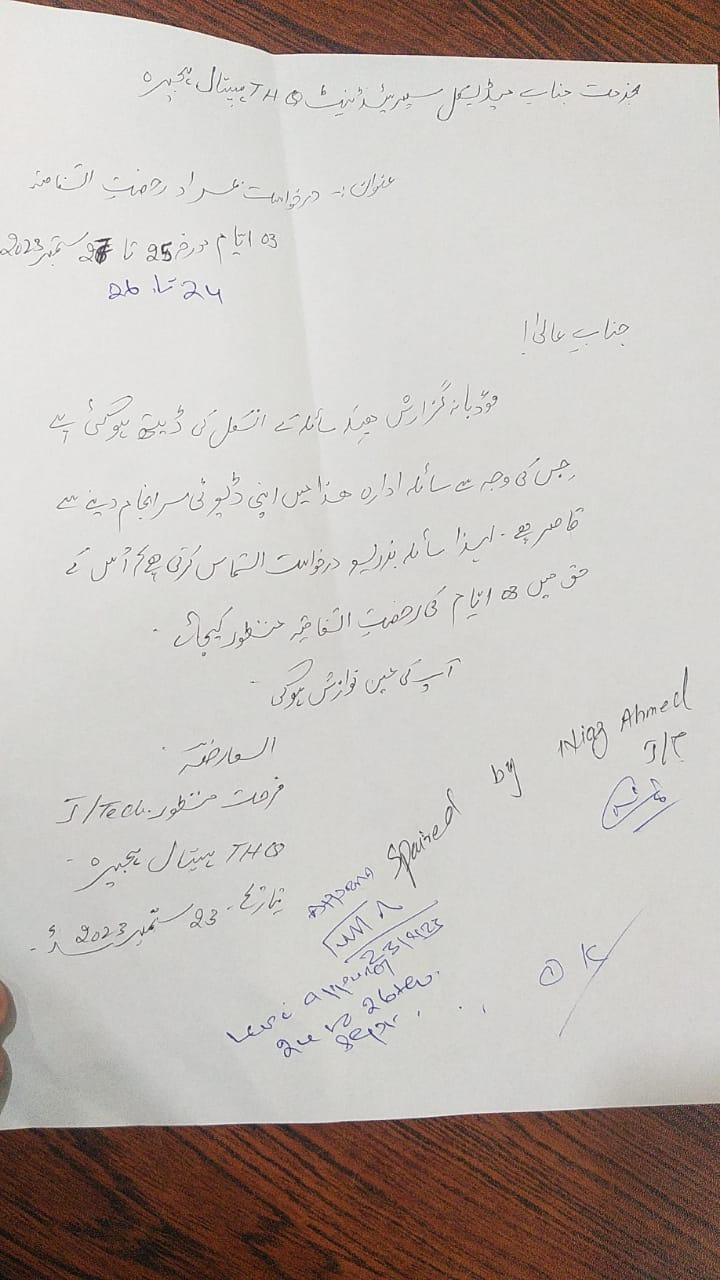 بخدمت جناب میڈیکل سپرنٹنڈنٹ THQ ہسپتال ہجیرہ
عنوان:- درخواست بمراد رخصتِ اتفاقیہ
03 ایّام مورخہ 25 تا 27 ستمبر 2023
24 تا 26
جنابِ عالیٰ!
مؤدبانہ گزارش ھیکہ سائلہ کے انکل کی ڈیتھ ہو گئی ہے
جس کی وجہ سے سائلہ ادارہ ھذا میں اپنی ڈیوٹی سر انجام دینے سے
قاصر ہے۔ لہذا سائلہ بذریعہ درخواست التماس کرتی ہے کہ اُس کے
حق میں 03 ایّام کی رخصتِ اتفاقیہ منظور کیجائے۔
آپ کی عین نوازش ہوگی۔
العارضہ
فرحت منظور I/Tech.
THQ ہسپتال ہجیرہ
تاریخ۔ 23 ستمبر 2023ء۔
Spaired by Niaz Ahmed
23/9/23
24 to 26
Sept.
OK